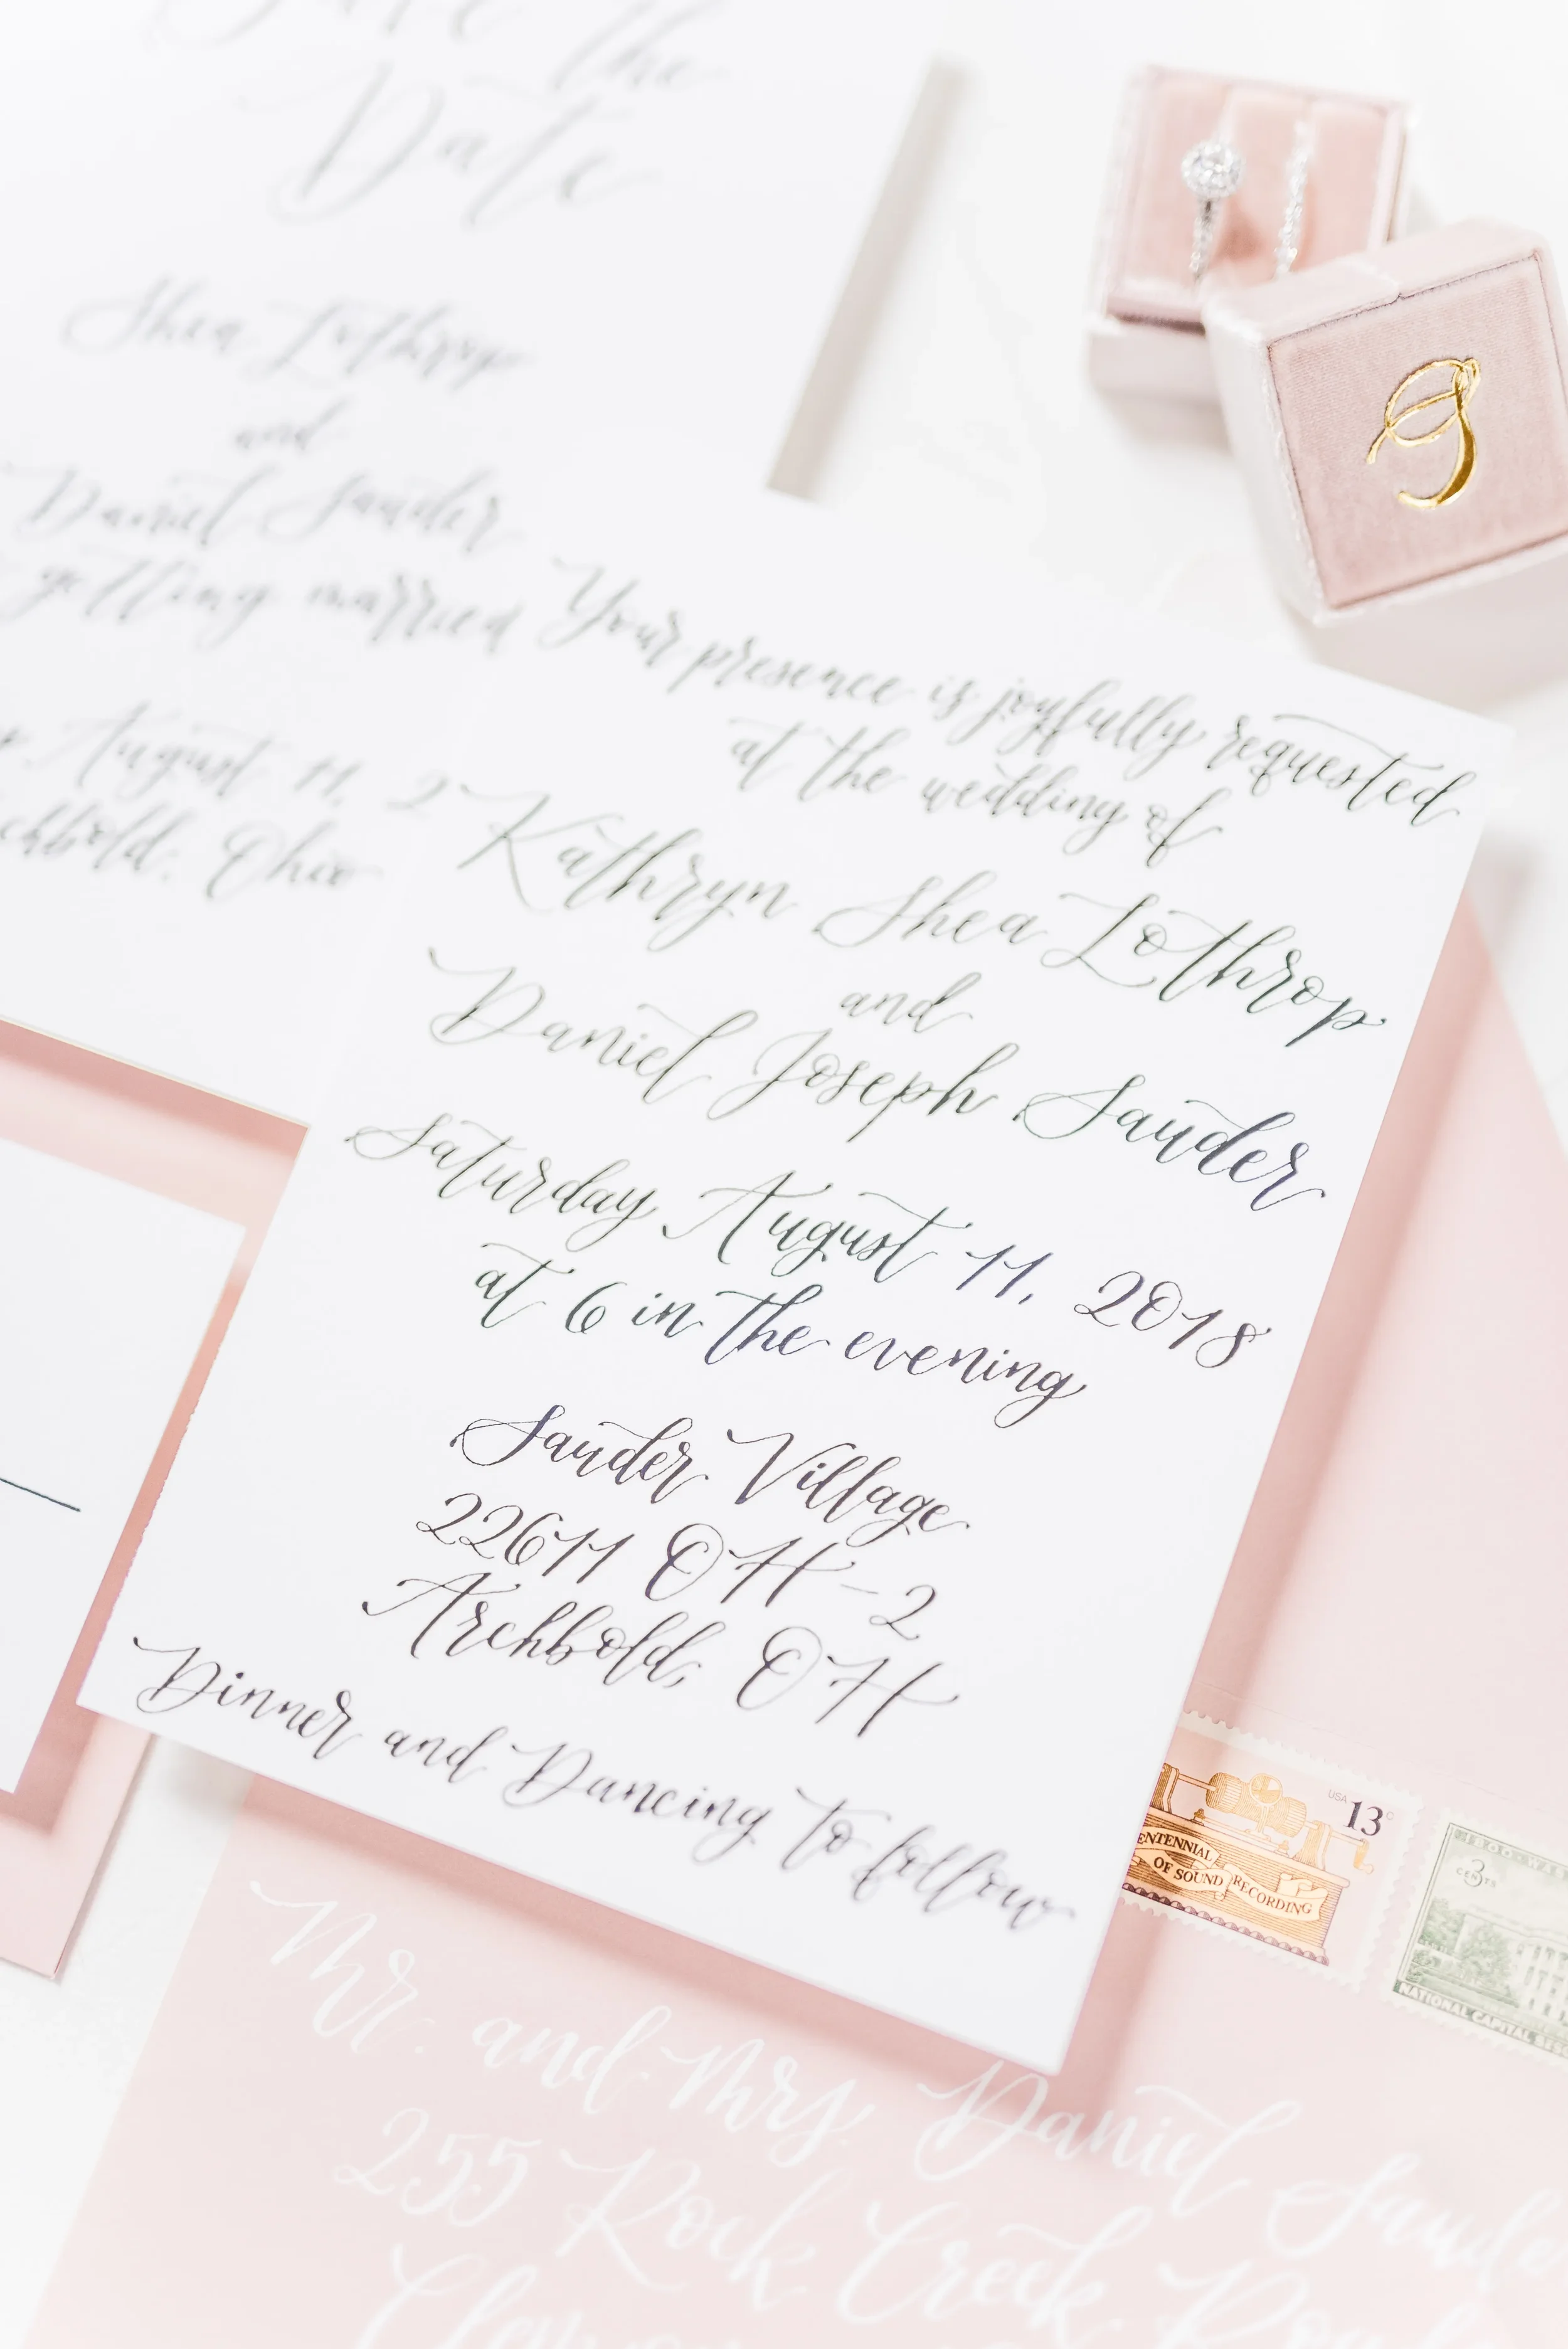 the
Date
Shea Lothrop
and
Daniel Sauder
getting married
August 11, 2
Ohio
Your presence is joyfully requested
at the wedding of
Kathryn Shea Lothrop
and
Daniel Joseph Sauder
Saturday August 11, 2018
at 6 in the evening
Sauder Village
22611 OH-2
Archbold, OH
Dinner and Dancing to follow
USA 13c
OF SOUND RECORDING
3 CENTS
NATIONAL CAPITAL
Mr. and Mrs. Daniel
255 Rock Creek